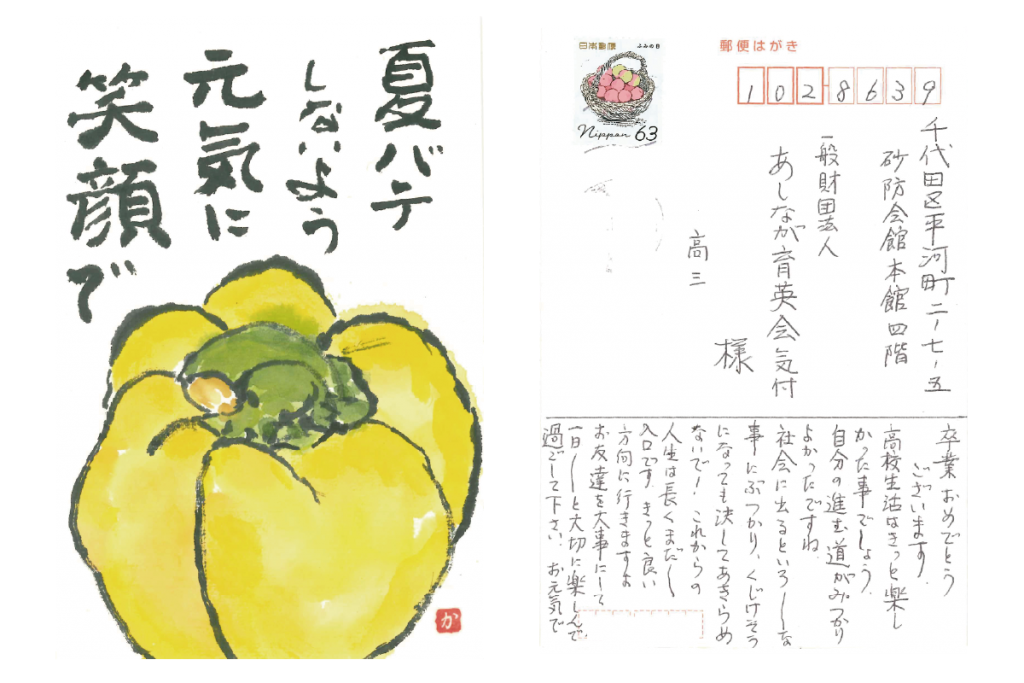 夏バテ
しないよう
元気に
笑顔で
か
日本郵便
ふみの日
Nippon 63
郵便はがき
102-8639
千代田区平河町二ー七ー五
砂防会館本館四階
一般財団法人
あしなが育英会気付
高三
様
卒業おめでとう
ございます。
高校生活はきっと楽し
かった事でしょう。
自分の進む道がみつかり
よかったですね。
社会に出るといろ〳〵な
事にぶつかり、くじけそう
になっても決してあきらめ
ないで！これからの
人生は長くまだ〳〵
入口です。きっと良い
方向に行きますよ
お友達を大事にして
一日〳〵と大切に楽しんで
過ごして下さい。お元気で